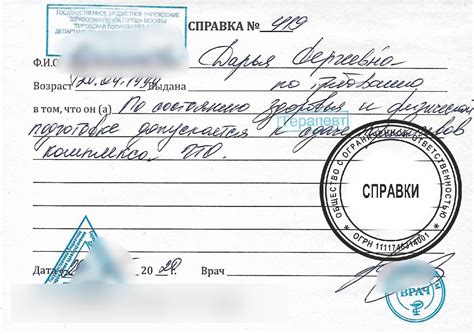 ГОСУДАРСТВЕННОЕ БЮДЖЕТНОЕ УЧРЕЖДЕНИЕ
ЗДРАВООХРАНЕНИЯ ГОРОДА МОСКВЫ
"ГОРОДСКАЯ ПОЛИКЛИНИКА
СПРАВКА №
Ф.И.О Дарья Сергеевна
Возраст Выдана по требованию
в том, что он (а) По состоянию здоровья и физической
подготовке допускается к сдаче
Терапевт
комплекса ГТО.
ОБЩЕСТВО С ОГРАНИЧЕННОЙ ОТВЕТСТВЕННОСТЬЮ
СПРАВКИ
ОГРН 1111746414001
Дата 2020. Врач
ВРАЧ